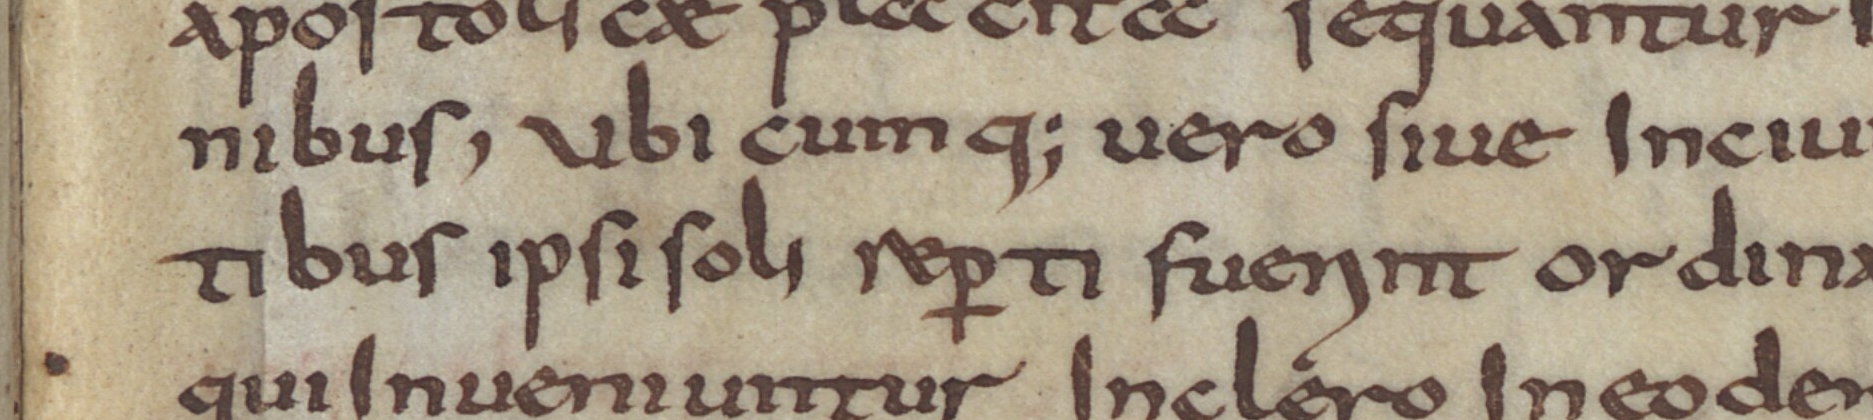 apostolis ex plecitec sequantur
nibus, ubi cumq; uero siue Inciu
tibus ipsi soli reꝑti fuerint ordina
qui Inueniuntur Inclero Ineoden